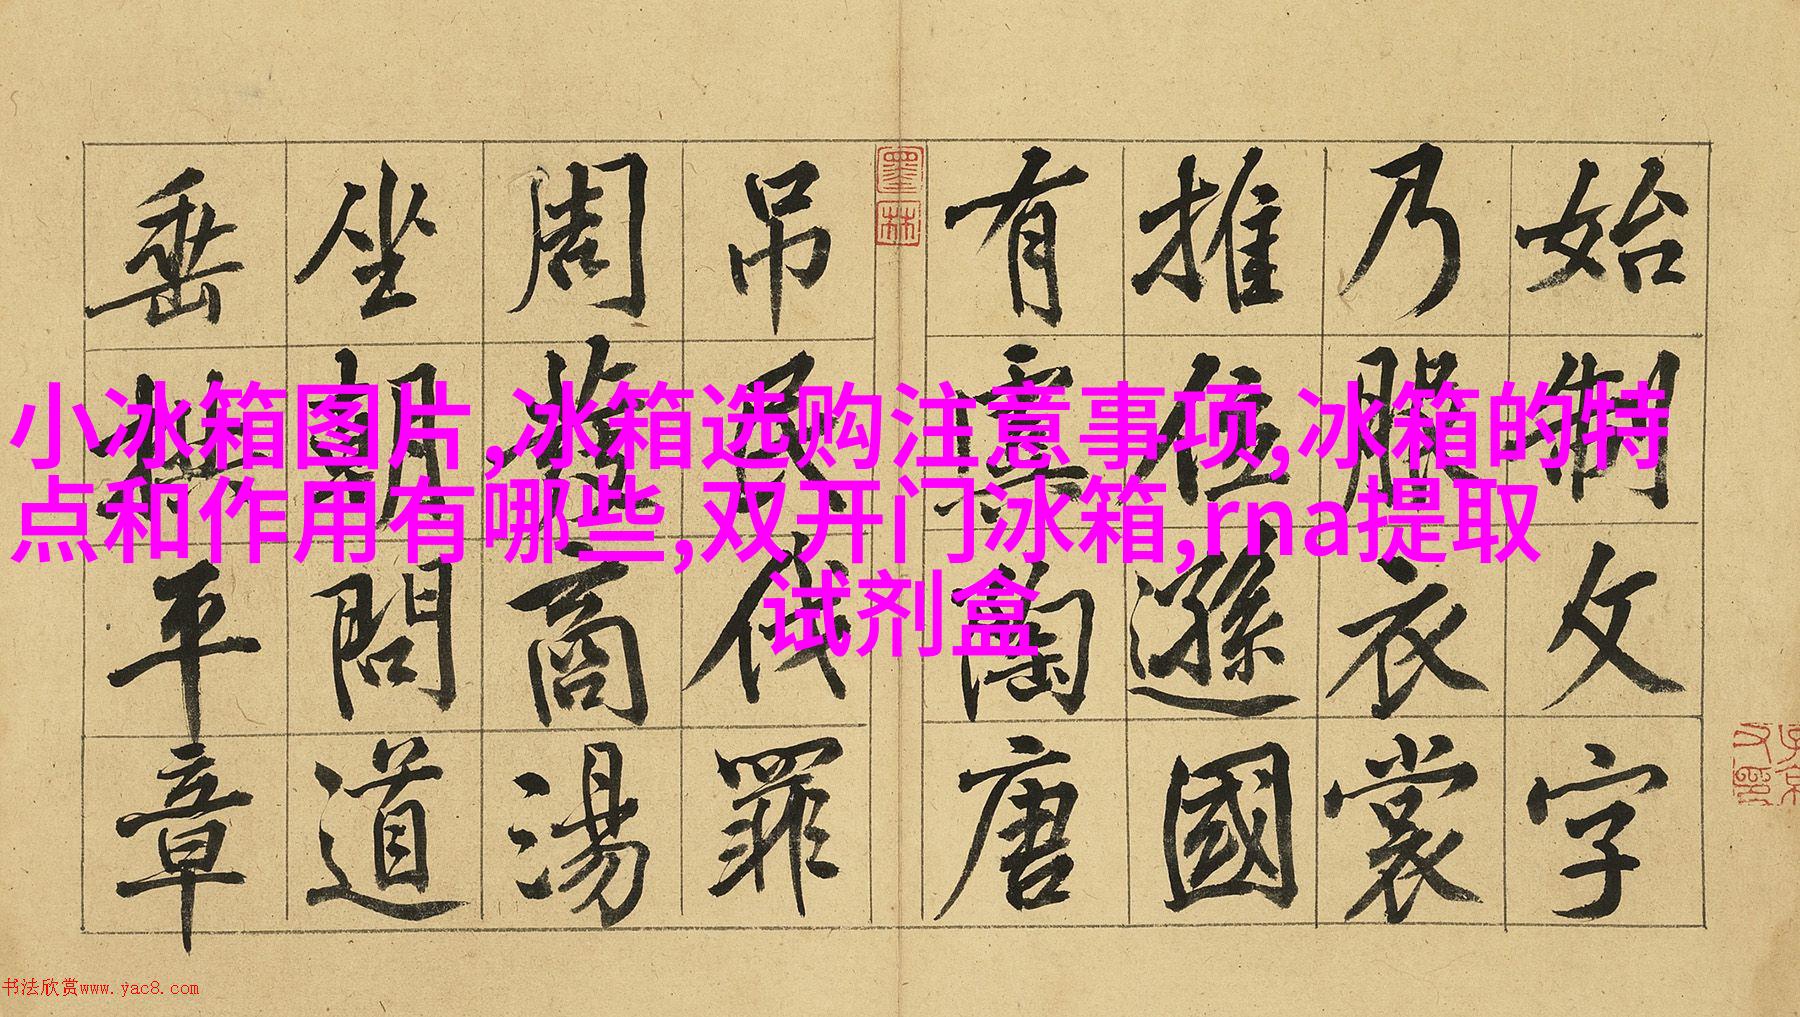 始制文字
乃服衣裳
推位遜國
有虞陶唐
吊民伐罪
周發商湯
坐朝問道
垂拱平章
墨林
小冰箱图片,冰箱选购注意事项,冰箱的特
点和作用有哪些,双开门冰箱,rna提取
试剂盒
书法欣赏www.yac8.com